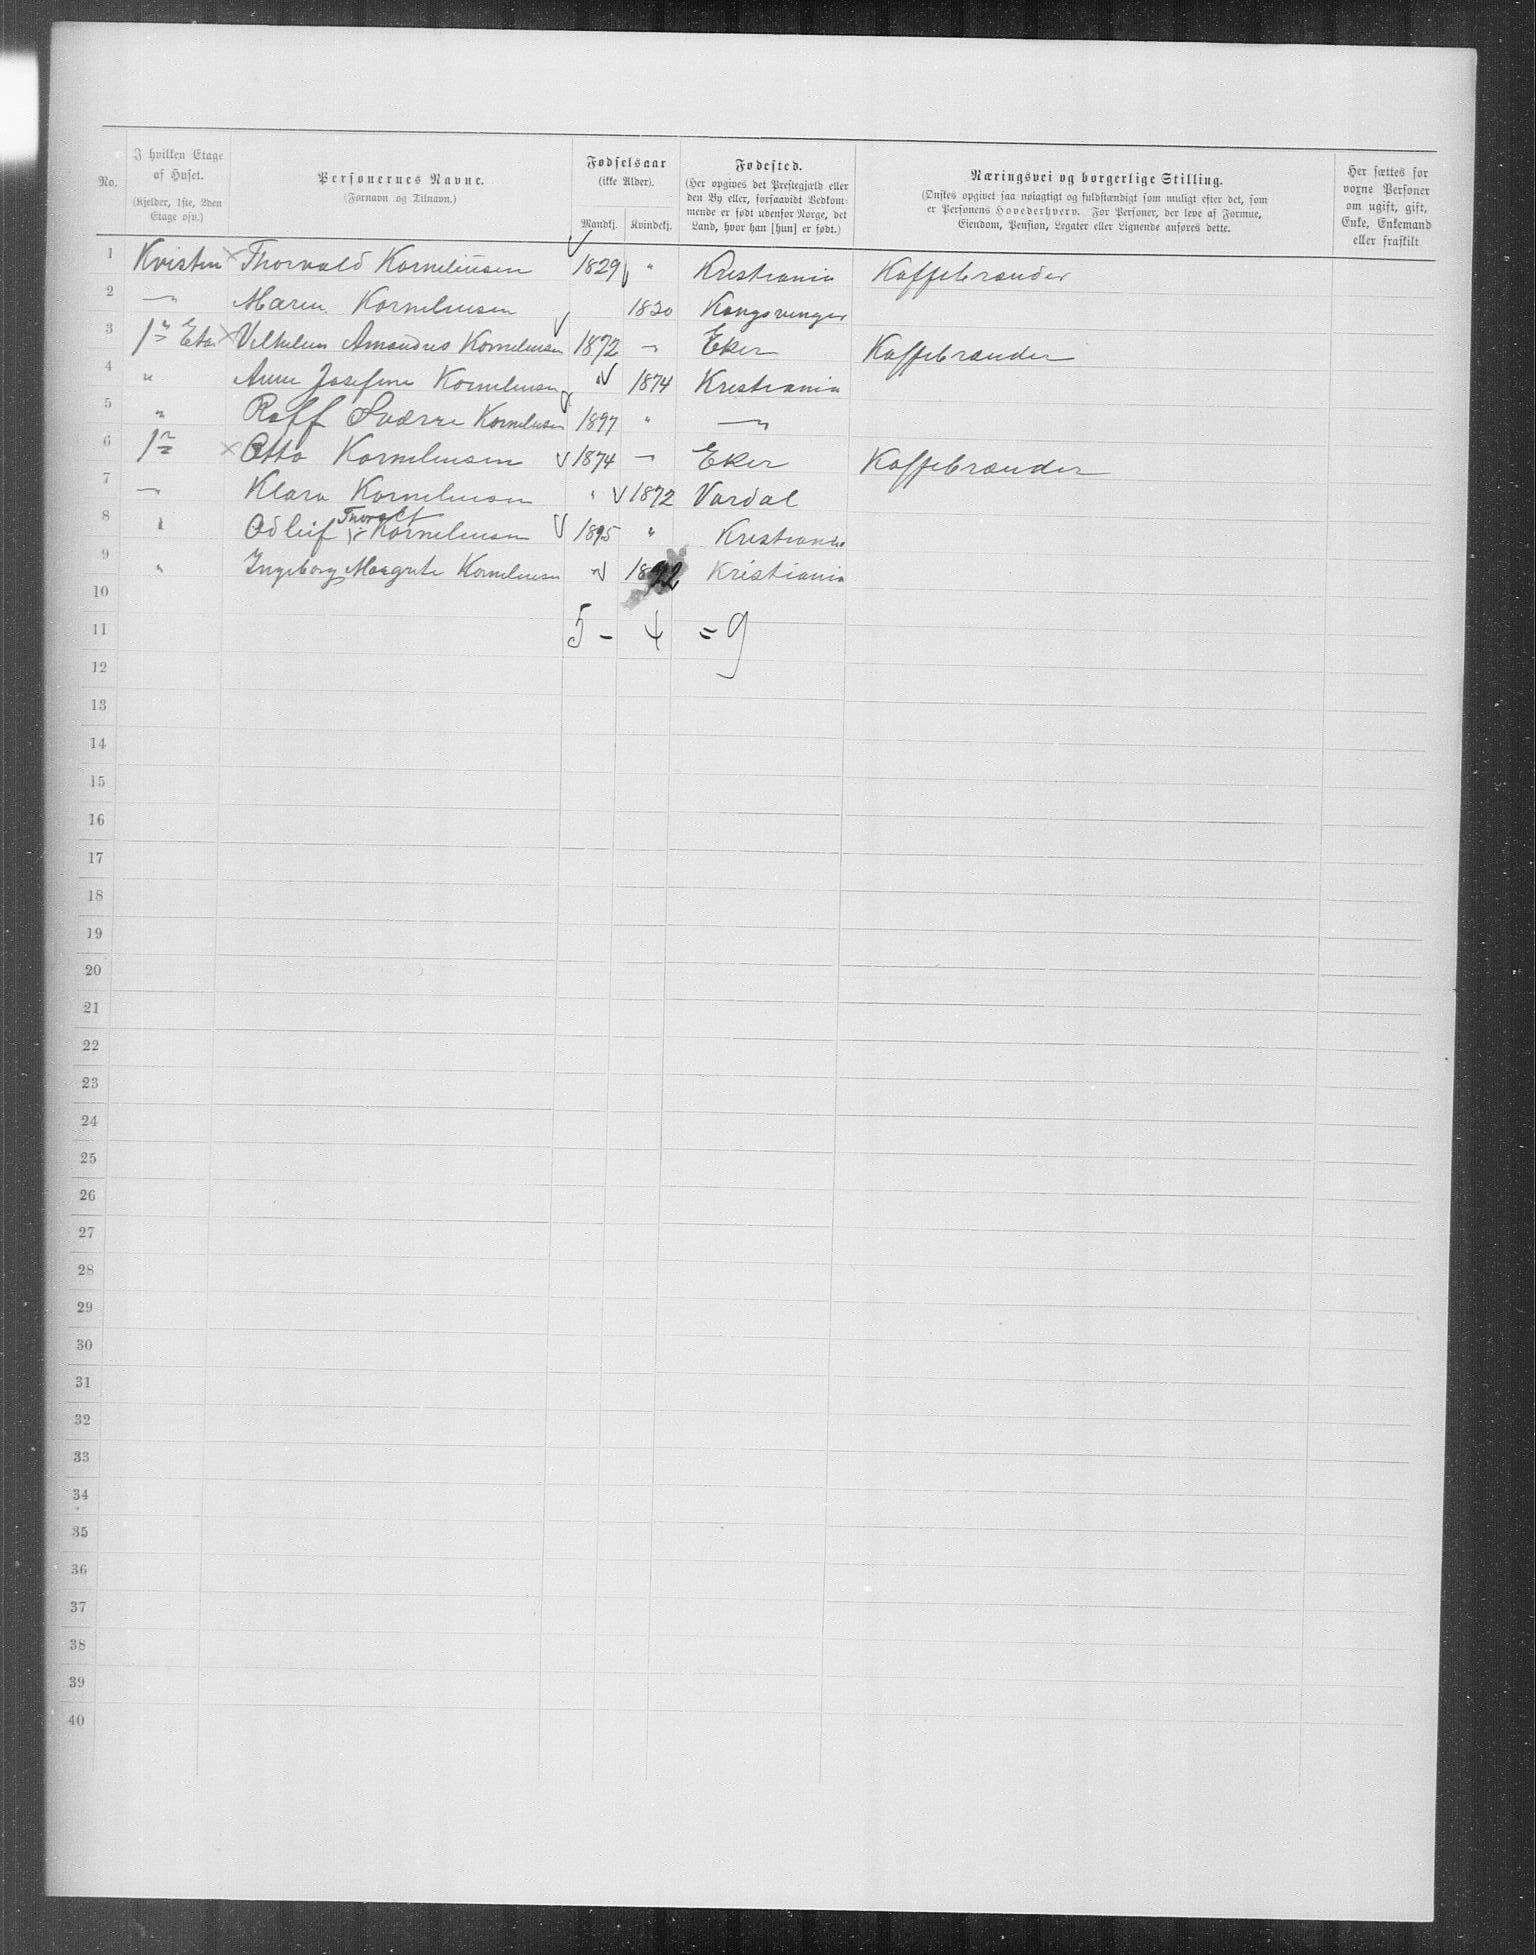 No. I hvilken Etage af Huset. (Kjelder, 1ste, 2den Etage osv.) Personernes Navne. (Fornavn og Tilnavn.) Fødselsaar (ikke Alder). Mandkj. Kvindekj. Fødested. (Her opgives det Prestegjæld eller den By eller, forsaavidt Vedkommende er født udenfor Norge, det Land, hvor han [hun] er født.) Næringsvei og borgerlige Stilling. (Ønskes opgivet saa nøiagtigt og fuldstændigt som muligt efter det, som er Personens Hovederhverv. For Personer, der leve af Formue, Eiendom, Pension, Legater eller Lignende anføres dette. Her sættes for voxne Personer om ugift, gift, Enke, Enkemand eller fraskilt
1 Kvisten × Thorvald Korneliusen 1829 " Kristiania Kaffebrænder
2 — " Maren Korneliusen 1830 Kongsvinger
3 1ste Eta × Vilhelm Amandus Korneliusen 1872 — " Eker Kaffebrænder
4 " Anne Josefine Korneliusen " 1874 Kristiania
5 " Rolf Sværre Korneliusen 1897 " — "
6 1ste × Otto Korneliusen 1874 — " Eker Kaffebrænder
7 — " Klara Korneliusen " 1872 Vardal
8 " Odleif Thoralt Korneliusen 1895 " Kristiania
9 " Ingeborg Margrete Korneliusen " 1892 Kristiania
10
11 5 - 4 = 9
12
13
14
15
16
17
18
19
20
21
22
23
24
25
26
27
28
29
30
31
32
33
34
35
36
37
38
39
40